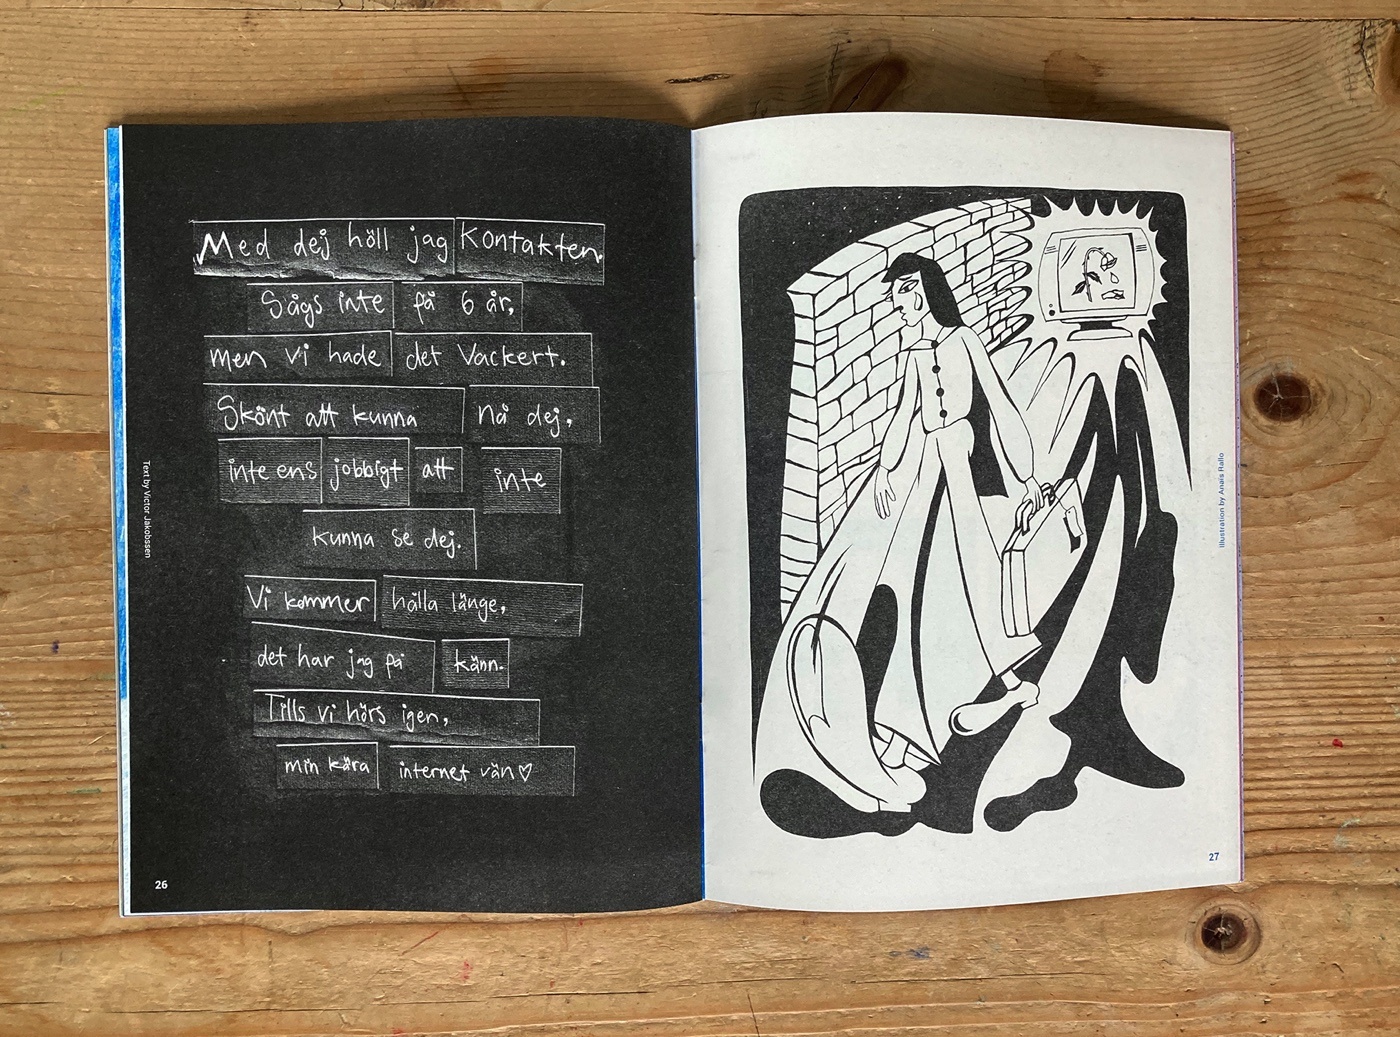 Med dej höll jag Kontakten.
Sågs inte på 6 år,
men vi hade det Vackert.
Skönt att kunna nå dej,
inte ens jobbigt att inte
kunna se dej.
Vi kommer hålla länge,
det har jag på känn.
Tills vi hörs igen,
min kära internet vän♡
Text by Victor Jakobssen
26
Illustration by Anaïs Rallo
27